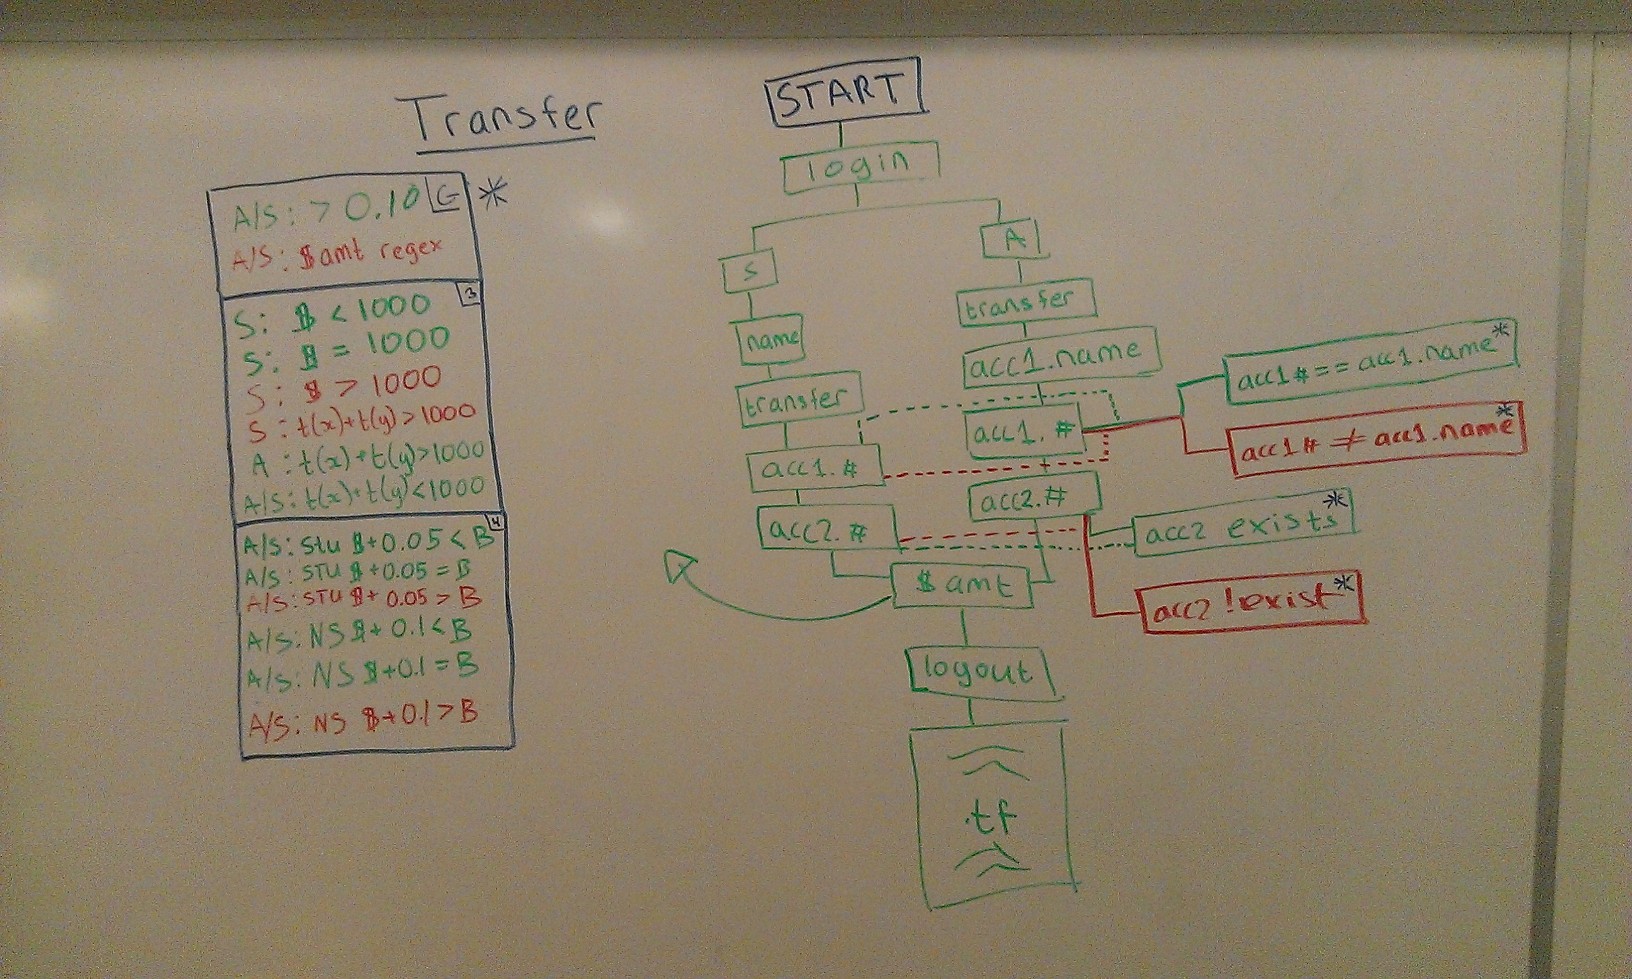 Transfer
A/S: > 0.10 G *
A/S: $amt regex
3
S: $ < 1000
S: $ = 1000
S: $ > 1000
S: t(x)+t(y)>1000
A: t(x)+t(y)>1000
A/S: t(x)+t(y)<1000
4
A/S: Stu $+0.05 < B
A/S: STU $+0.05 = B
A/S: STU $+ 0.05 > B
A/S: NS $+ 0.1 < B
A/S: NS $+0.1 = B
A/S: NS $+0.1 > B
START
login
S
A
name
transfer
transfer
acc1.name
acc1.#
acc1.#
acc2.#
acc2.#
acc1# == acc1.name*
acc1# ≠ acc1.name*
acc2 exists*
acc2 !exist*
$ amt
logout
.tf